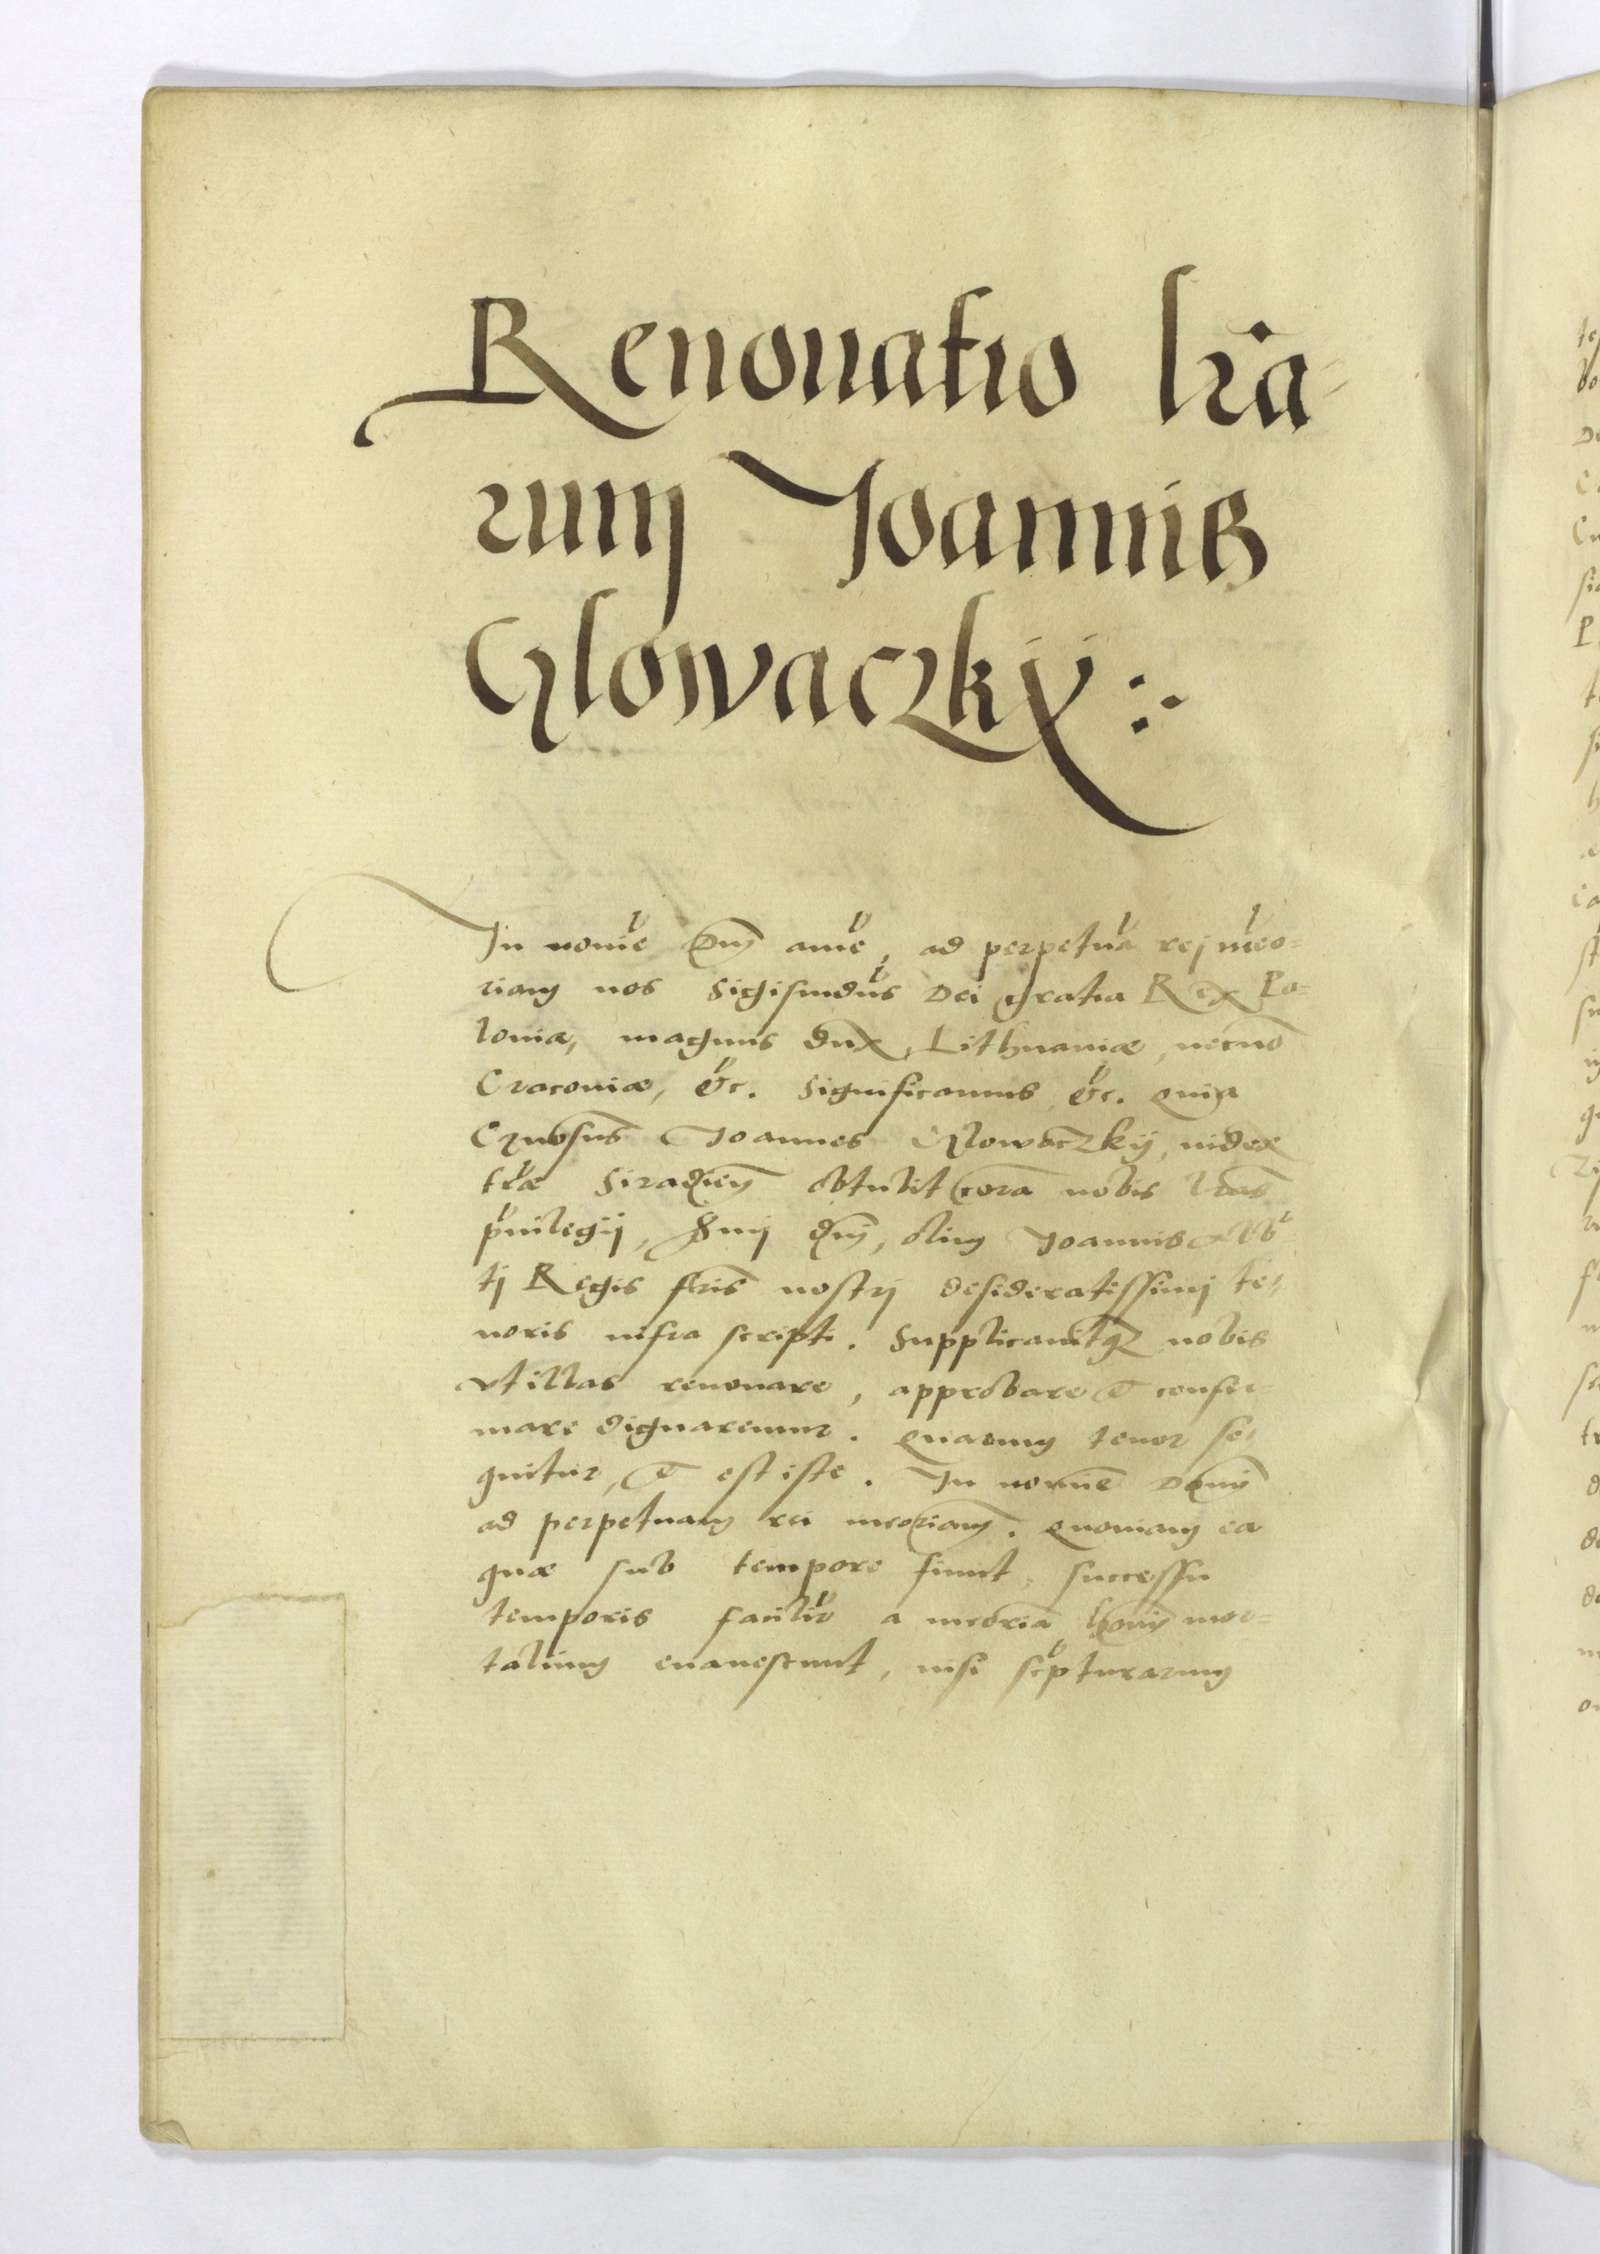 Renouatio lr̃a-
rum Joannis
Glowaczkij :.
In nomĩe Dnĩ amẽ, ad perpetuã rej mẽo-
riam nos Sigismũdus Dei gratia Rex Po-
loniæ, magnus dux Lithuaniæ, necnõ
Cracoviæ, &c. Significamus &c. quia
Gñosus Joannes Glowaczkij, iudex
træ Siradieñ obtulit corã nobis lras̃
priuilegij, Smj dnj, olim Joannis Alb
tj Regis fris̃ nostrj desideratissimj te-
noris infra scripti. Supplicauitq nobis
vt illas renouare, approbare & confir-
mare dignaremur. Quarum tenor se-
quitur, & est iste. In nomine Domĩ
ad perpetuam rei meoriam̃. Quoniam ea
quæ sub tempore fiunt, successu
temporis faciliũ a meoriã hom̃ mor-
talium euanescunt, nisi scripturarum